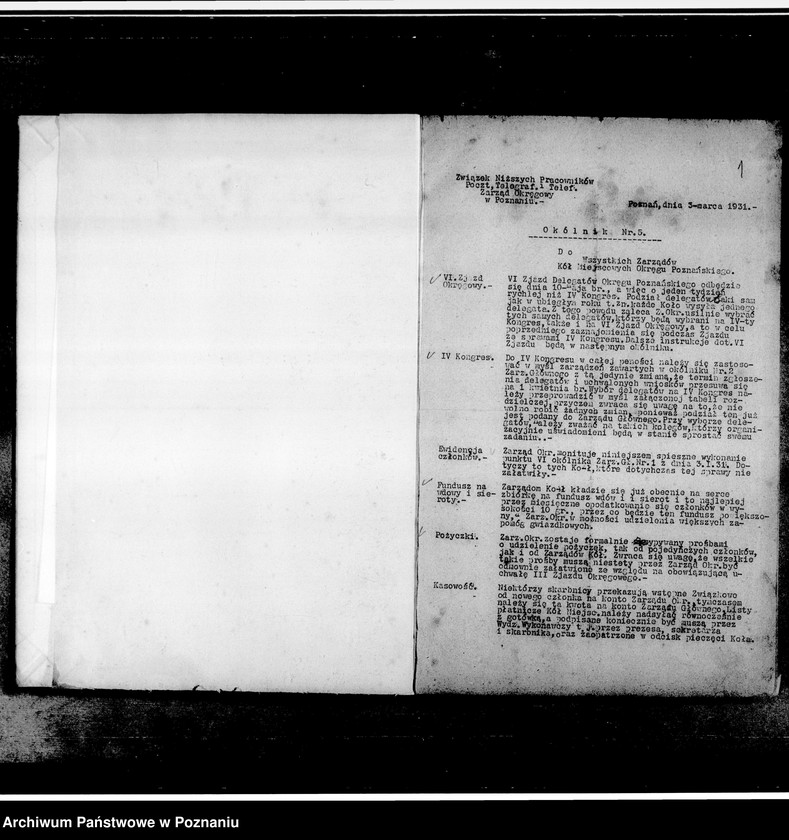 1
Związek Niższych Pracowników
Poczt, Telegraf. i Telef.
Zarząd Okręgowy
w Poznaniu.-
Poznań, dnia 3-marca 1931.-
Okólnik Nr.5.
Do
Wszystkich Zarządów
Kół Miejscowych Okręgu Poznańskiego.
VI. Zjazd
Okręgowy.-
VI Zjazd Delegatów Okręgu Poznańskiego odbędzie
się dnia 10-maja br., a więc o jeden tydzień
rychlej niż IV Kongres. Podział delegatów taki sam
jak w ubiegłym roku t.zn. każde Koło wysyła jednego
delegata. Z tego powodu zaleca Z.Okr. usilnie wybrać
tych samych delegatów, którzy będą wybrani na IV-ty
Kongres, także i na VI Zjazd Okręgowy, a to w celu
poprzedniego zaznajomienia się podczas Zjazdu
ze sprawami IV Kongresu. Dalsze instrukcje dot. VI
Zjazdu będą w następnym okólniku.
IV Kongres.
Do IV Kongresu w całej pełności należy się zastoso-
wać w myśl zarządzeń zawartych w okólniku Nr.2
Zarz. Głównego z tą jedynie zmianą, że termin zgłosze-
nia delegatów i uchwalonych wniosków przesuwa się
na 1 kwietnia br. Wybór delegatów na IV Kongres na-
leży przeprowadzić w myśl załączonej tabeli roz-
dzielczej, przyczem zwraca się uwagę na to, że nie
wolno robić żadnych zmian, ponieważ podział ten już
jest podany do Zarządu Głównego. Przy wyborze dele-
gatów, należy zważać na takich kolegów, którzy organi-
zacyjnie uświadomieni będą w stanie sprostać swemu
zadaniu..-
Ewidencja
członków.-
Zarząd Okr. monituje niniejszem spieszne wykonanie
punktu VI okólnika Zarz. Gł. Nr.1 z dnia 3.1.31. Do-
tyczy to tych Kół, które dotychczas tej sprawy nie
załatwiły.-
Fundusz na
wdowy i sie-
roty.-
Zarządom Kół kładzie się już obecnie na serce
zbiórkę na fundusz wdów i i sierot i to najlepiej
przez miesięczne opodatkowanie się członków w wy-
sokości 10 gr., przez co będzie ten fundusz po iększo-
ny," Zarz. Okr. w możności udzielenia większych za-
pomóg gwiazdkowych.
Pożyczki.
Zarz. Okr. zostaje formalnie zasypywany prośbami
o udzielenie pożyczek, tak od pojedyńczych członków,
jak i od Zarządów Kół. Zwraca się uwagę, że wszelkie
takie prośby muszą niestety przez Zarząd Okr. być
odmownie załatwione ze względu na obowiązującą u-
chwałę III Zjazdu Okręgowego.-
Kasowość.
Niektórzy skarbnicy przekazują wstępne Związkowe
od nowego członka na konto Zarządu Okr. tymczasem
należy się ta kwota na konto Zarządu Głównego. Listy
płatnicze Kół Miejsc. należy nadsyłać równocześnie
z gotówką, a podpisane koniecznie być muszą przez
Wydz. Wykonawczy t.j. przez prezesa, sekretarza
i skarbnika, oraz zaopatrzone w odcisk pieczęci Koła.
Archiwum Państwowe w Poznaniu